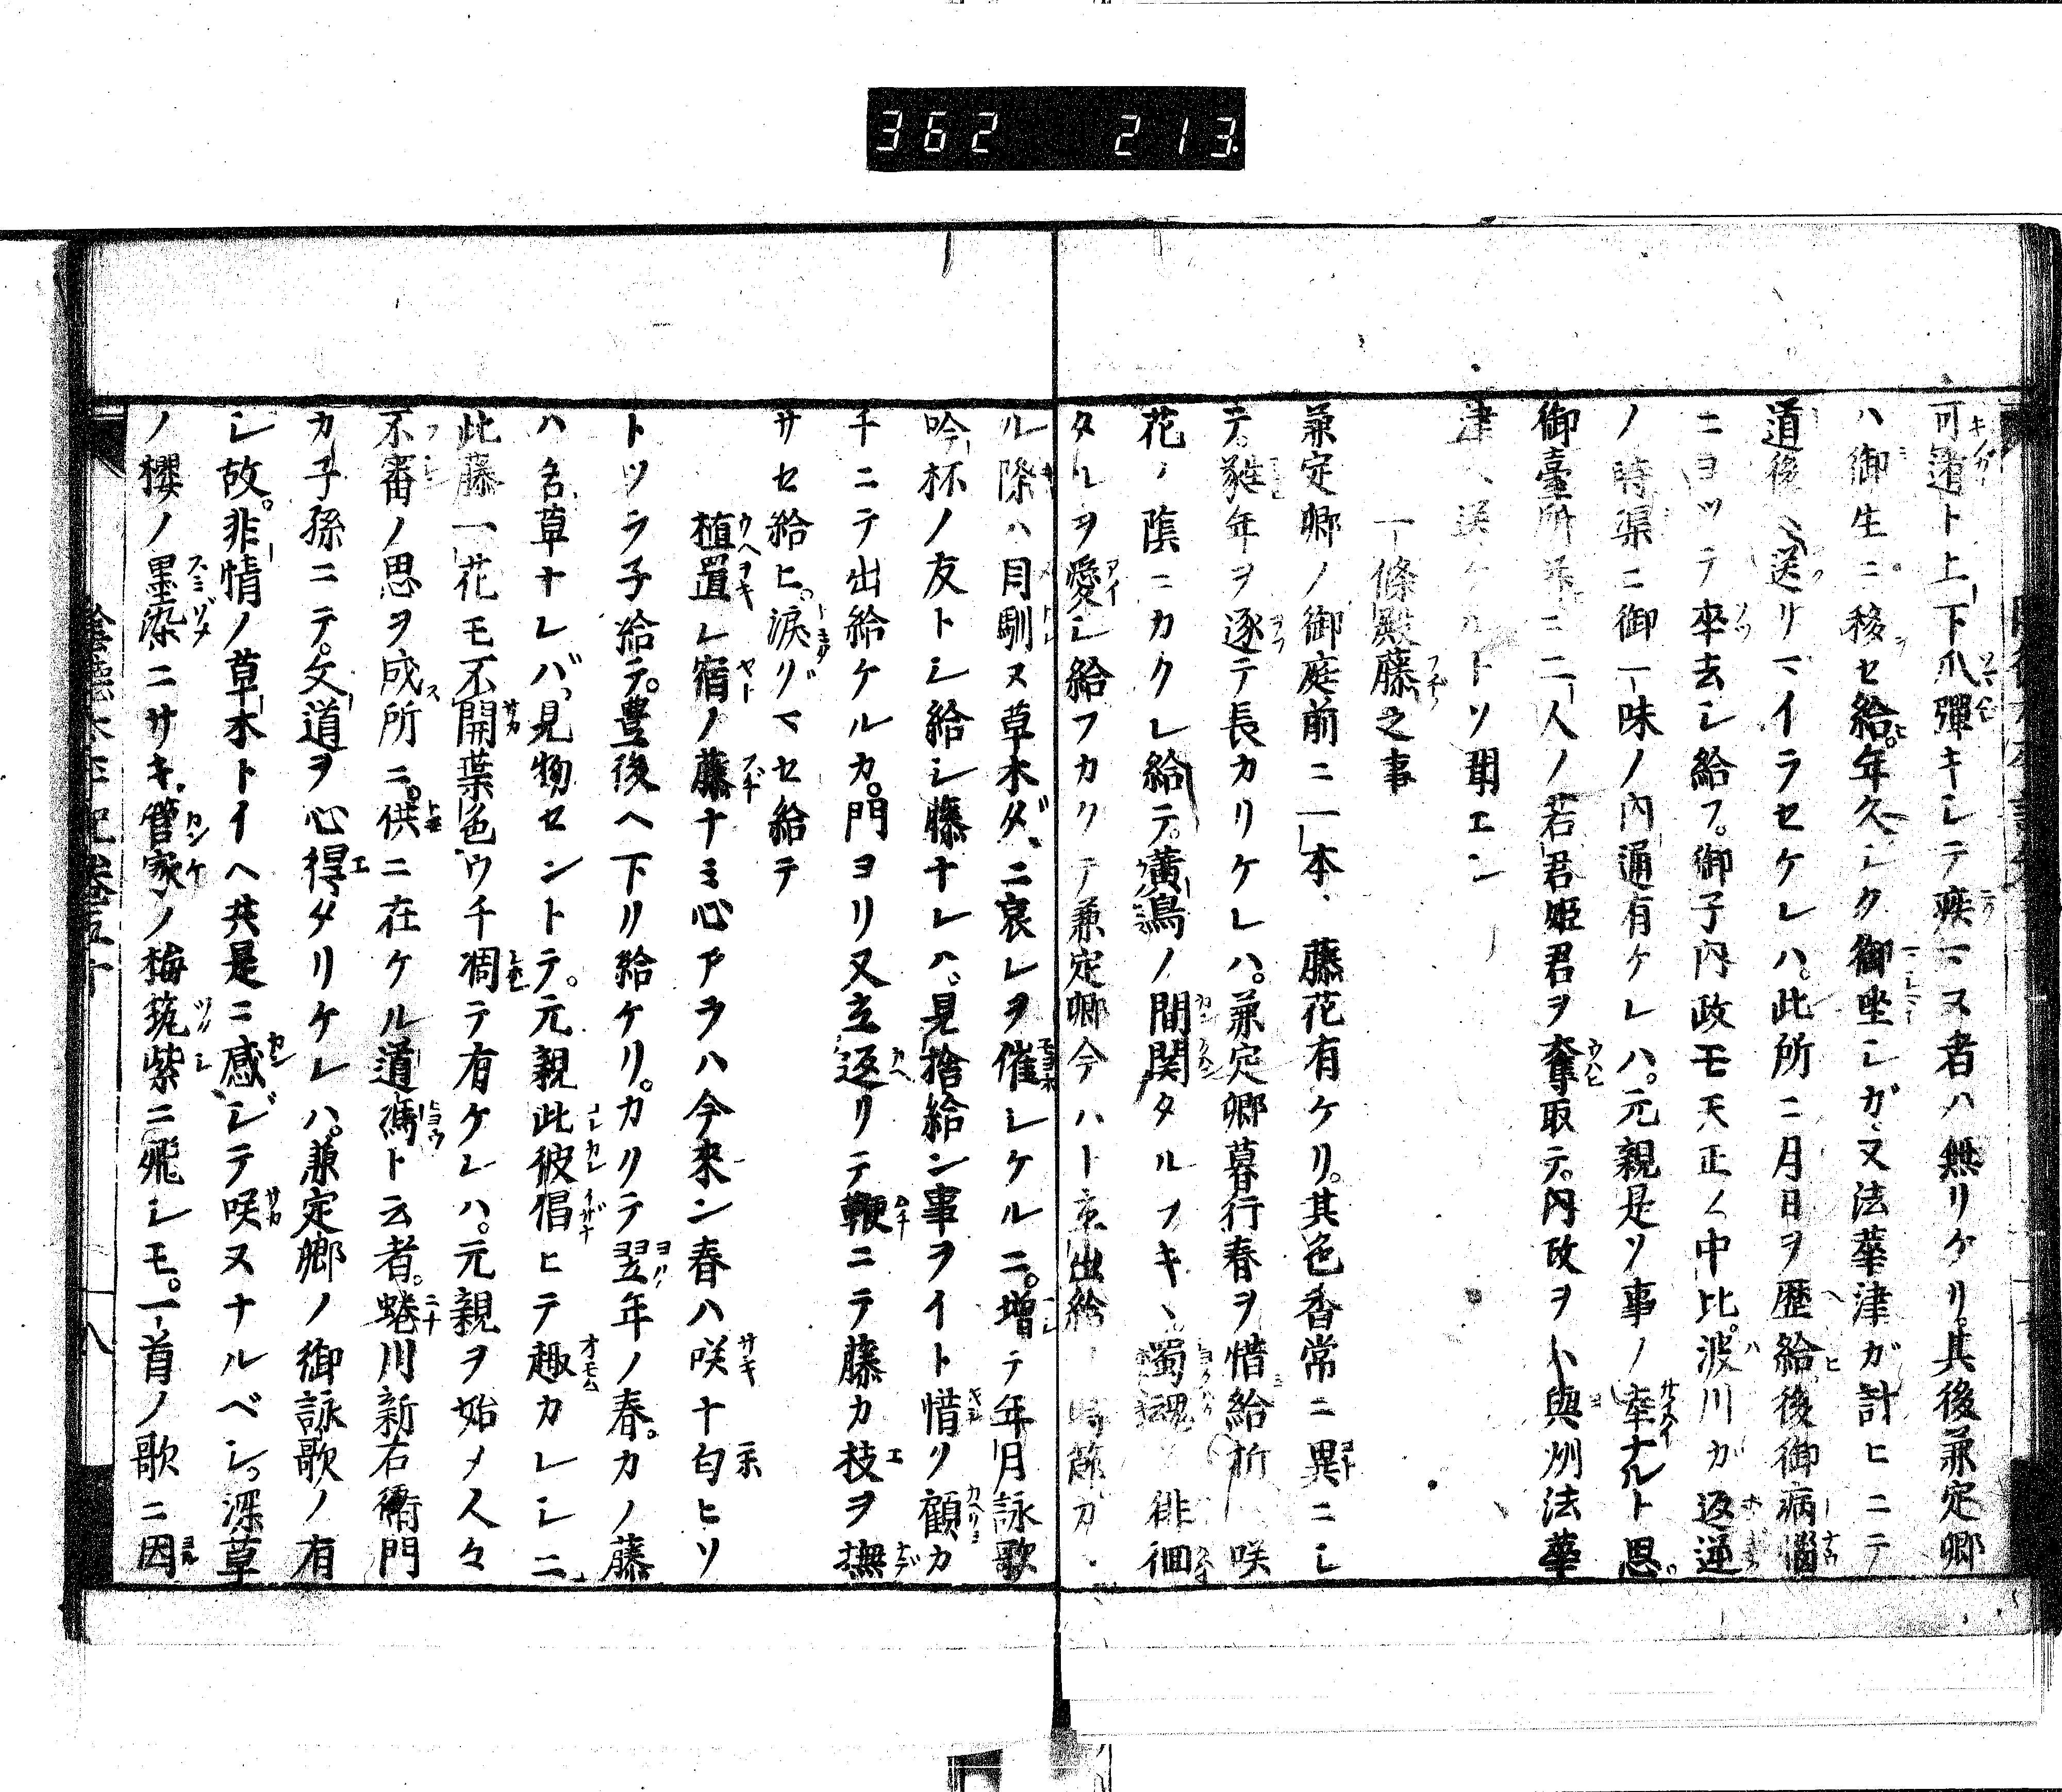 362 213
可遁ト上下爪彈キレテ疾マヌ者ハ無リケリ。其後兼定卿
ハ御生ニ移セ給。年久シク御坐シガ、又法華津ガ計ヒニテ
道後ヘ送リマイラセケレハ。此所ニ月日ヲ歴給後御病惱
ニヨツテ卒去シ給フ。御子内政モ天正ノ中比。波川ガ返逆
ノ時渠ニ御一味ノ内通有ケレハ。元親是ソ事ノ幸ナルト思。
御臺所并ニ二人ノ若君姫君ヲ奪取テ。内政ヲハ與州法華
津ヘ送ケルトソ聞エン
一條殿藤之事
兼定卿ノ御庭前ニ一本ノ藤花有ケリ。其色香常ニ異ニシ
テ。蕤年ヲ逐テ長カリケレハ。兼定卿暮行春ヲ惜給折 咲
花ノ蔭ニカクレ給テ。黄鳥ノ間関タルフキ、蜀魂 徘徊
タルヲ愛シ給フカクテ兼定卿今ハト京出給 時節カ
ル際ハ目馴ヌ草木ダニ哀レヲ催シケルニ。増テ年月詠歌
吟杯ノ友トシ給シ藤ナレハ。見捨給ン事ヲイト惜ク顧カ
チニテ出給ケルカ。門ヨリ又立返リテ鞭ニテ藤カ枝ヲ撫
サセ給ヒ。涙グマセ給テ
植置シ宿ノ藤ナミ心アラハ今来ン春ハ咲ナ匂ヒソ
トツラ子給テ。豊後ヘ下リ給ケリ。カクテ翌年ノ春。カノ藤
ハ名草ナレバ、見物セントテ。元親此彼倡ヒテ趣カレシニ
此藤一花モ不開葉色ウチ凋テ有ケレハ。元親ヲ始メ人々
不審ノ思ヲ成所ニ。供ニ在ケル道馮ト云者。蜷川新右衛門
カ子孫ニテ。文道ヲ心得タリケレハ。兼定卿ノ御詠歌ノ有
シ故。非情ノ草木トイヘ共是ニ感ジテ咲ヌナルベシ。深草
ノ櫻ノ墨染ニサキ。管家ノ梅筑紫ニ飛シモ。一首ノ歌ニ因
陰徳太平記巻五十
八